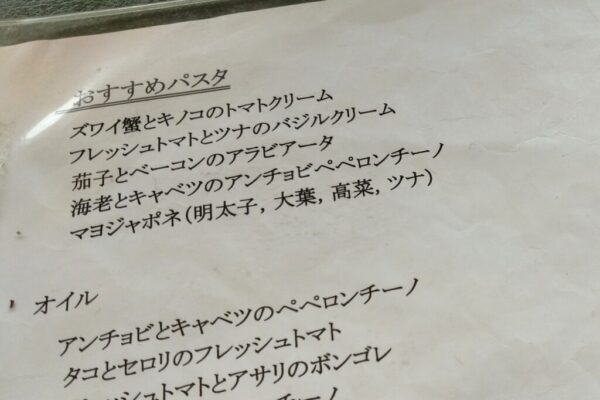 おすすめパスタ
ズワイ蟹とキノコのトマトクリーム
フレッシュトマトとツナのバジルクリーム
茄子とベーコンのアラビアータ
海老とキャベツのアンチョビペペロンチーノ
マヨジャポネ(明太子, 大葉, 高菜, ツナ)
オイル
アンチョビとキャベツのペペロンチーノ
タコとセロリのフレッシュトマト
フレッシュトマトとアサリのボンゴレ